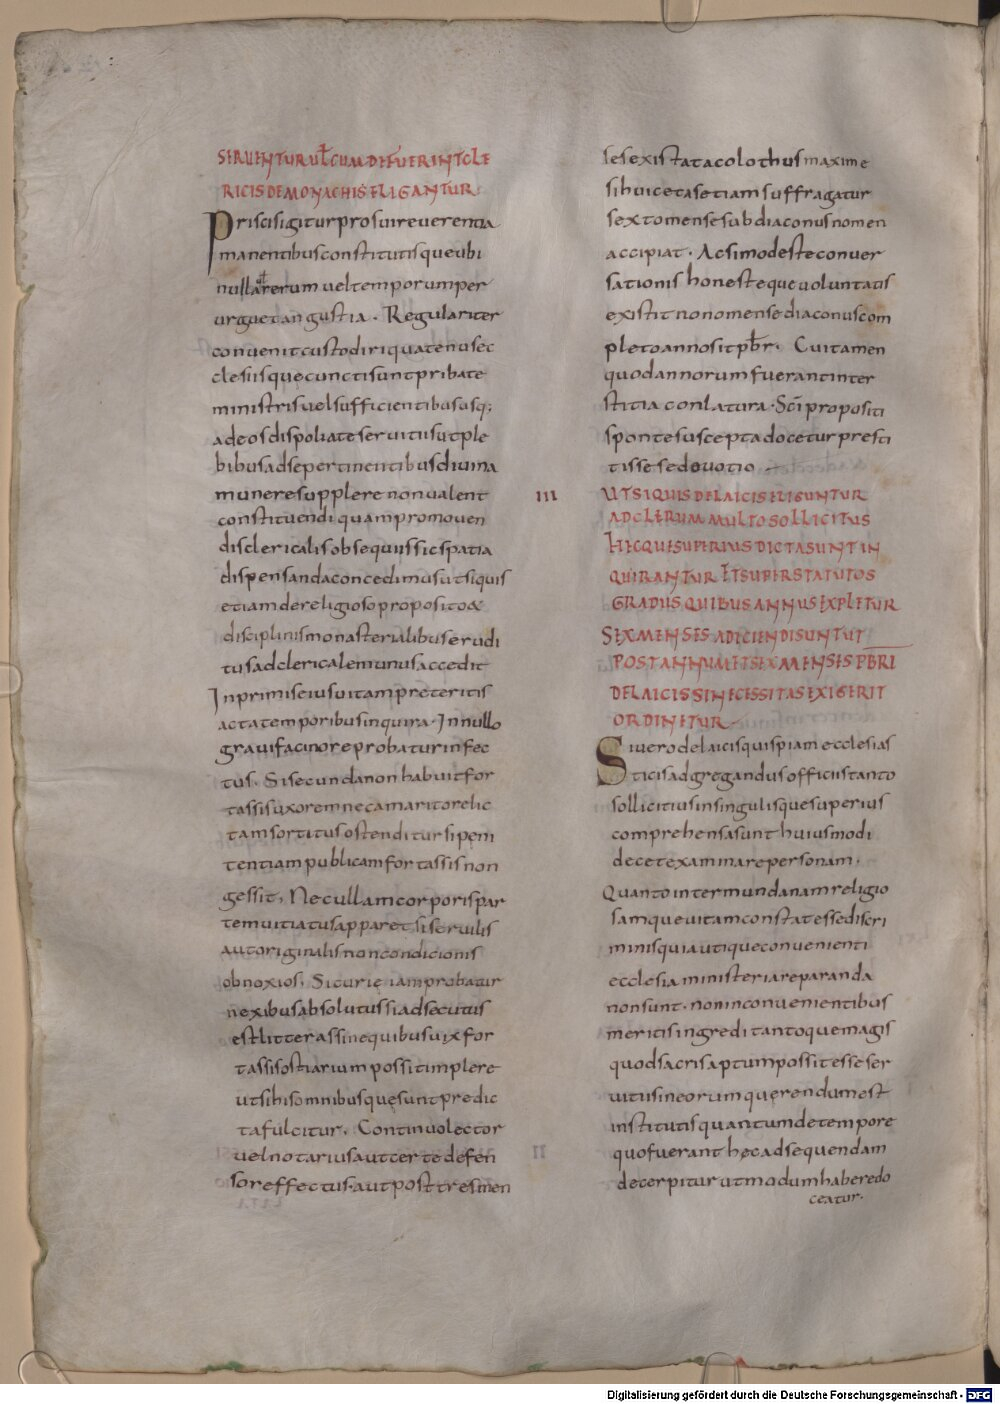 SERVENTUR UĿ CUM DEFUERINT CLE
RICIS DE MONACHIS ELIGANTUR
Priscis igitur pro sui reuerentia
manentibus constitutis que ubi
nulla uł rerum uel temporum per
urguet angustia. Regulariter
conuenit custodiri quatenus ec
clesiis que cunctis unt pribate
ministris uel sufficientibus usq;
adeo dispoliate seruitiis ut ple
bibus ad se pertinentibus diuina
munere supplere non ualent
constituendi quam promouen
dis clericalis obsequiis sic spatia
dispensanda concedimus ut siquis
etiam de religioso proposito &
disciplinis monasterialibus erudi
tus ad clericale munus accedit
Inprimis eius uitam preteritis
acta temporibus inquira. In nullo
graui facinore probatur infec
tus. Si secunda non habuit for
tassis uxorem nec a marito relic
tam sortitus ostenditur si peni
tentiam publicam fortassis non
gessit. Nec ullam corporis par
tem uitiatus apparet. si seruilis
aut originalis non condicionis
obnoxios. Si curie iam probatur
nexibus absolutus si adsecutus
est litteras sine quibus uix for
tassis ostiarium possit implere
ut si his omnibus que sunt predic
ta fulcitur. Continuo lector
uel notarius aut certe defen
sor effectus. aut post tres men
ses existat acolothus maxime
si huic etas etiam suffragatur
sexto mense subdiaconus nomen
accipiat. Ac si modeste conuer
sationis honesteque uoluntatis
existit nono mense diaconus com
pleto anno sit pƀr. Cui tamen
quod annorum fuerant inter
stitia conlatura. Sci propositi
sponte suscepta docetur presti
tisse se deuotio
III UT SI QUIS DE LAICIS ELIGUNTUR
AD CLERUM MULTO SOLLICITUS
HEC QUE SUPERIUS DICTA SUNT IN
QUIRANTUR ET SUPER STATUTOS
GRADUS QUIBUS ANNUS EXPLETUR
SEX MENSES ADICIENDI SUNT UT
POST ANNUM ET SEX MENSES PBRI
DE LAICIS SI NECESSITAS EXIGERIT
ORDINETUR
Si uero de laicis quispiam ecclesias
ticis adgregandus officiis tanto
sollicitius in singulis que superius
comprehensa sunt huiusmodi
decet examinare personam.
Quanto inter mundanam religio
samque uitam constat esse discri
minis qui autique conuenienti
ecclesia ministeria reparanda
non sunt. non inconuenientibus
meritis ingredi tantoque magis
quod sacris aptum possit esse ser
uitus in eorum querendum est
institutis quantum de tempore
quo fuerant hoc adsequendam
decerpitur ut modum habere do
ceatur.
Digitalisierung gefördert durch die Deutsche Forschungsgemeinschaft - DFG